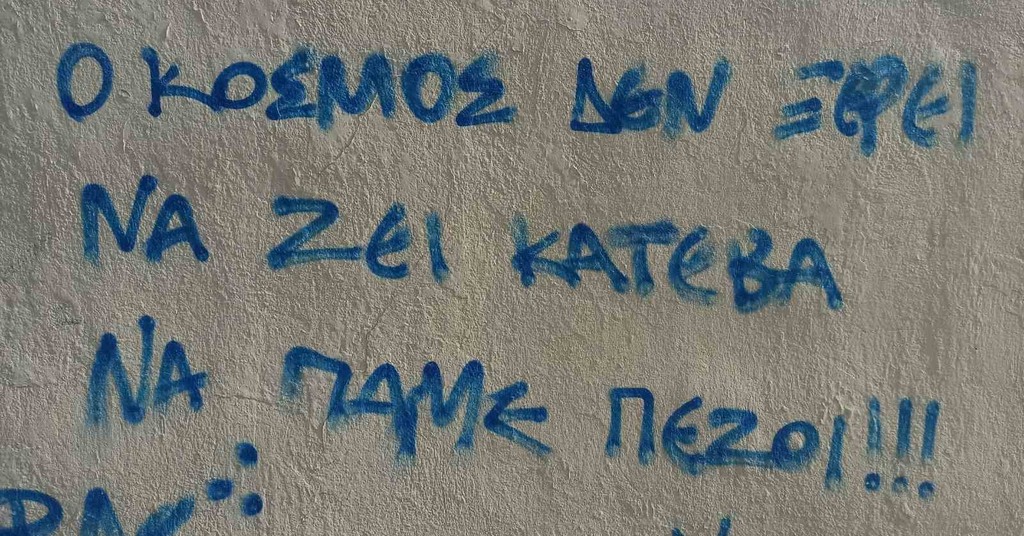 Ο ΚΟΣΜΟΣ ΔΕΝ ΞΕΡΕΙ
ΝΑ ΖΕΙ ΚΑΤΕΒΑ
ΝΑ ΠΑΜΕ ΠΕΖΟΙ!!!